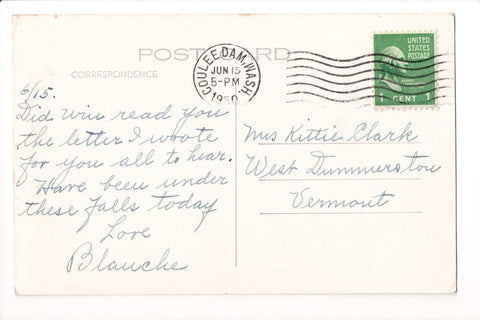 POST CARD
CORRESPONDENCE
COULEE DAM, WASH.
JUN 15
5-PM
1950
UNITED
STATES
POSTAGE
1 CENT 1
6/15.
Did Win read you
the letter I wrote
for you all to hear.
Have been under
these falls today
Love
Blanche
Mrs Kittie Clark
West Dummerston
Vermont